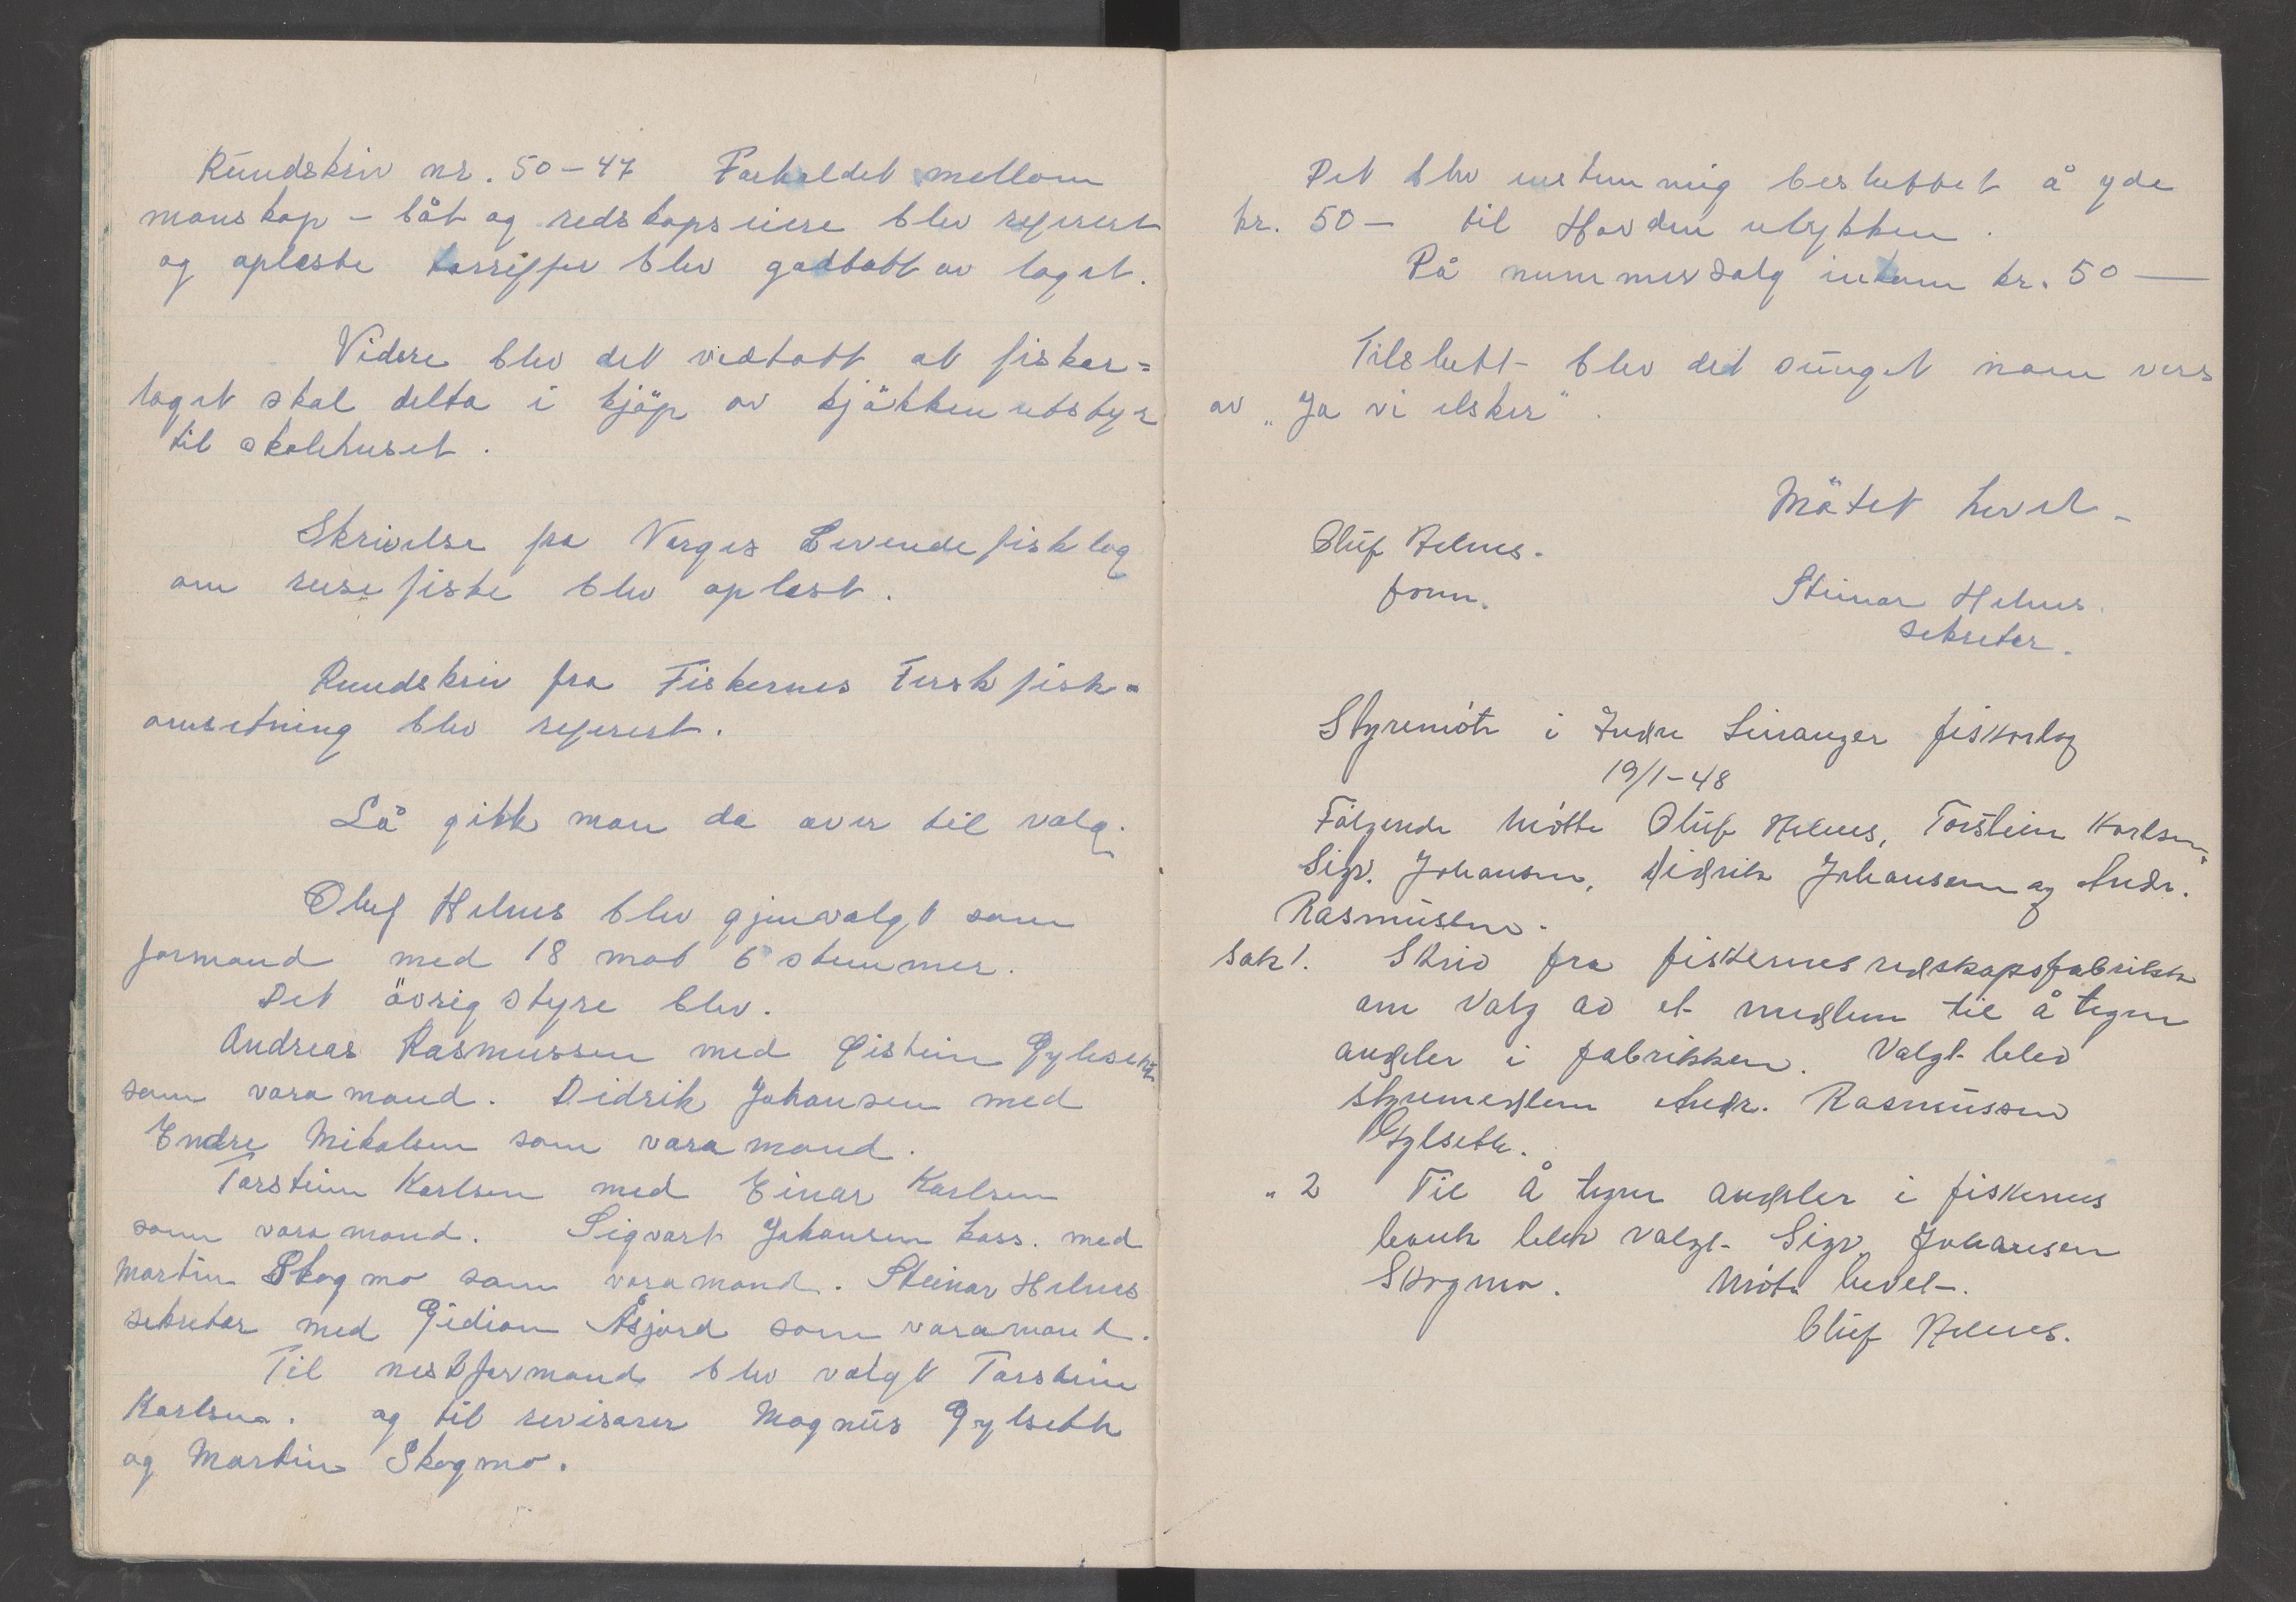 Rundskriv nr. 50-47 Forholdet mellom
manskap - båt og redskapseiere blev referert
og oplæste tarriffer blev godtatt av laget.
Videre blev det vedtatt at fisker=
laget skal delta i kjöp av kjökkenutstyr
til skolehuset.
Skrivelse fra Norges Levendefisklag
om rusefiske blev oplest.
Rundskriv fra Fiskernes Ferskfisk=
omsetning blev referert.
Så gikk man da over til valg.
Oluf Helnes blev gjenvalgt som
formand med 18 mot 6 stemmer.
Det övrig styre blev.
Andreas Rasmussen med Øistein Gylseth
som varamand. Didrik Johansen med
Endre Mikalsen som varamand.
Torstein Karlsen med Einar Karlsen
som varamand. Sigvart Johansen kass. med
Martin Skogmo som varamand. Steinar Helnes
sekretær med Gidion Åsjord som varamand.
Til nestformand blev valgt Torstein
Karlsen. og til revisorer Magnus Gylseth
og Martin Skogmo.
Det blev enstemmig besluttet å yde
kr. 50- til Havden ulykken.
På nummersalg inkom kr. 50 —
Tilslutt blev det sunget noen vers
av „Ja vi elsker".
Mötet hevet-
Oluf Helnes.
form.
Steinar Helnes.
sekretær.
Styremöte i Indre Leiranger fiskarlag
19/1-48
Fölgende mötte Oluf Helnes, Torstein Karlsen,
Sigv. Johansen, Didrik Johansen og Andr.
Rasmussen.
Sak 1. Skriv fra fiskernes redskapsfabrikk
om valg av et medlem til å tegne
andeler i fabrikken. Valgt blev
styremedlem Andr. Rasmussen
Gylseth.
„ 2 Til å tegne andeler i fiskernes
bank blev valgt Sigv. Johansen
Skogmo. Möte hevet-.
Oluf Helnes.